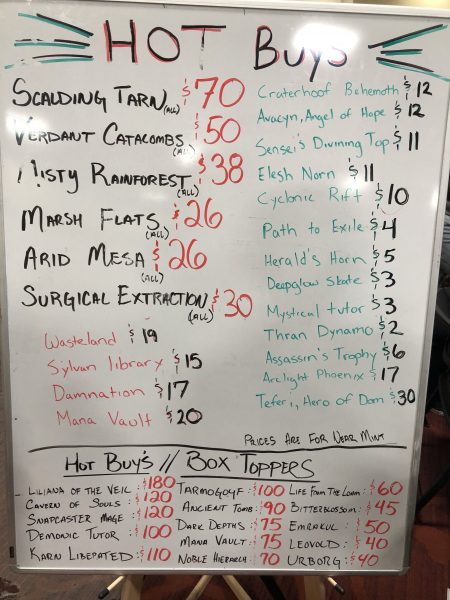 HOT BUYS
SCALDING TARN (ALL) $70
VERDANT CATACOMBS (ALL) $50
MISTY RAINFOREST (ALL) $38
MARSH FLATS (ALL) $26
ARID MESA (ALL) $26
SURGICAL EXTRACTION (ALL) $30
Wasteland $19
Sylvan library $15
Damnation $17
Mana Vault $20
Craterhoof Behemoth $12
Avacyn, Angel of Hope $12
Sensei's Divining Top $11
Elesh Norn $11
Cyclonic Rift $10
Path to Exile $4
Herald's Horn $5
Deapglow skate $3
Mystical tutor $3
Thran Dynamo $2
Assassin's Trophy $6
Arclight Phoenix $17
Teferi, Hero of Dom $30
PRICES ARE FOR NEAR MINT
HOT BUY'S // BOX TOPPERS
LILIANA OF THE VEIL: $180
CAVERN OF SOULS: $120
SNAPCASTER MAGE: $120
DEMONIC TUTOR: $100
KARN LIBERATED: $110
TARMOGOYF: $100
ANCIENT TOMB: $90
DARK DEPTHS: $75
MANA VAULT: $75
NOBLE HIERARCH: $70
LIFE FROM THE LOAM: $60
BITTERBLOSSOM: $45
EMRAKUL: $50
LEOVOLD: $40
URBORG: $40